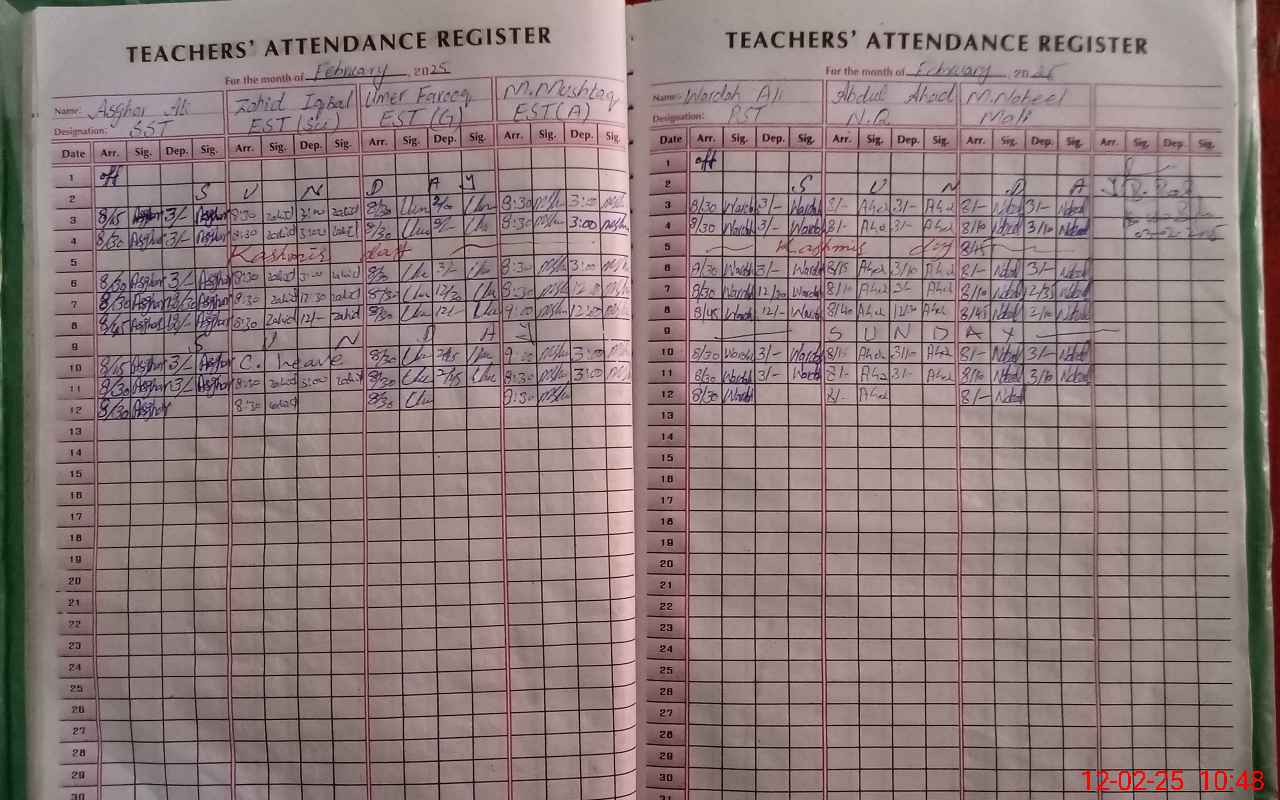 TEACHERS' ATTENDANCE REGISTER
For the month of February, 2025
Name: Asghar Ali Zahid Iqbal Umer Farooq M. Mushtaq
Designation: SST EST (Sci) EST (G) EST (A)
Date Arr. Sig. Dep. Sig. Arr. Sig. Dep. Sig. Arr. Sig. Dep. Sig. Arr. Sig. Dep. Sig.
1 off
2 S U N D A Y
3 8/45 Asghar 3/- Asghar 8:30 zahid 3:00 zahid 8/30 8:30 3:00
4 8/30 Asghar 3/- Asghar 8:30 zahid 3:00 zahid 8/30 8:30 3:00
5 Kashmir day
6 8/30 Asghar 3/- Asghar 8:30 zahid 3:00 zahid 8/30 3/- 8:30 3:00
7 8/30 Asghar 12/30 Asghar 8:30 zahid 12:30 zahid 8/30 12/30 8:30
8 8/45 Asghar 12/- Asghar 8:30 zahid 12/- zahid 8/30 12/- 9:00
9 S U N D A Y
10 8/45 Asghar 3/- Asghar C. Leave 8/30 9:00 3:00
11 8/30 Asghar 3/- Asghar 8:30 zahid 3:00 zahid 8/30 8:30 3:00
12 8/30 Asghar 8:30 zahid 8/30 8:30
13
14
15
16
17
18
19
20
21
22
23
24
25
26
27
28
29
30
TEACHERS' ATTENDANCE REGISTER
For the month of February, 2025
Name: Wardah Ali Abdul Ahad M. Nabeel
Designation: N.Q Mali
Date Arr. Sig. Dep. Sig. Arr. Sig. Dep. Sig. Arr. Sig. Dep. Sig. Arr. Sig. Dep. Sig.
1 off
2 S U N D A
3 8/30 Wardah 3/- Wardah 8/- Ahad 3/- Ahad 8/- Nabeel 3/- Nabeel
4 8/30 Wardah 3/- Wardah 8/- Ahad 3/- Ahad 8/- Nabeel 3/10 Nabeel
5 Kashmir day 8/45
6 8/30 Wardah 3/- Wardah 8/15 Ahad 3/10 Ahad 8/- Nabeel 3/- Nabeel
7 8/30 Wardah 12/30 Wardah 8/10 Ahad 3/- Ahad 8/10 Nabeel 12/35 Nabeel
8 8/45 Wardah 12/- Wardah 8/40 Ahad Ahad 8/45 Nabeel Nabeel
9 S U N D A Y
10 8/30 Wardah 3/- Wardah 8/15 Ahad 3/10 Ahad 8/- Nabeel 3/- Nabeel
11 8/30 Wardah 3/- Wardah 8/- Ahad 3/- Ahad 8/10 Nabeel 3/10 Nabeel
12 8/30 Wardah 8/- Ahad 8/- Nabeel
13
14
15
16
17
18
19
20
21
22
23
24
25
26
27
28
29
30
12-02-25 10:48